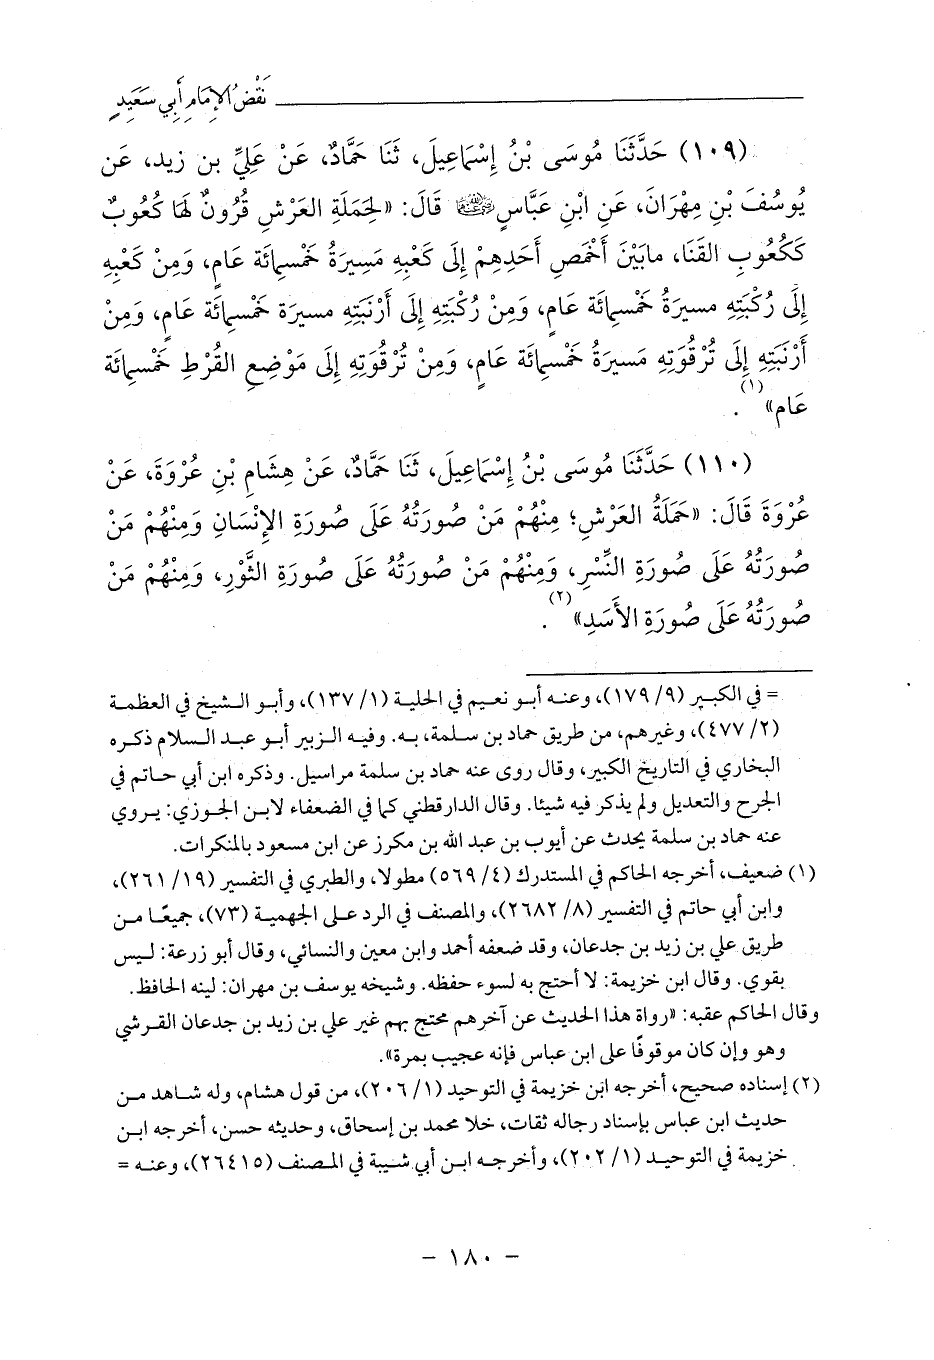 نَقْضُ الإِمَامِ أَبِي سَعَيدٍ
(١٠٩) حَدَّثَنَا مُوسَى بْنُ إِسْمَاعِيلَ، ثَنَا حَمَّادٌ، عَنْ عَلِيِّ بن زيد، عَن
يُوسُفَ بْنِ مِهْرَانَ، عَنِ ابْنِ عَبَّاسٍ قَالَ: «لِحَمَلَةِ العَرْشِ قُرُونٌ لَهَا كُعُوبٌ
كَكُعُوبِ القَنَا، مابَيْنَ أَخْمَصِ أَحَدِهِمْ إِلَى كَعْبِهِ مَسِيرَةُ خَمْسِمِائَة عَامٍ، وَمِنْ كَعْبِهِ
إِلَى رُكْبَتِهِ مسيرَةُ خَمْسِمِائَة عَامٍ، وَمِنْ رُكْبَتِهِ إِلَى أَرْنَبَتِهِ مسيرَة خَمْسِمِائَة عَامٍ، وَمِنْ
أَرْنَبَتِهِ إِلَى تُرْقُوَتِهِ مَسيرَةُ خَمْسِمِائَة عَامٍ، وَمِنْ تُرْقُوَتِهِ إِلَى مَوْضِعِ القُرْطِ خَمْسِمِائَة
عَام»(١).
(١١٠) حَدَّثَنَا مُوسَى بْنُ إِسْمَاعِيلَ، ثَنَا حَمَّادٌ، عَنْ هِشَامِ بْنِ عُرْوَةَ، عَنْ
عُرْوَةَ قَالَ: «حَمَلَةُ العَرْشِ؛ مِنْهُمْ مَنْ صُورَتُهُ عَلَى صُورَةِ الإِنْسَانِ وَمِنْهُمْ مَنْ
صُورَتُهُ عَلَى صُورَةِ النِّسْرِ، وَمِنْهُمْ مَنْ صُورَتُهُ عَلَى صُورَةِ الثَّوْرِ، وَمِنْهُمْ مَنْ
صُورَتُهُ عَلَى صُورَةِ الأَسَدِ»(٢).
= في الكبير (٩/ ١٧٩)، وعنه أبو نعيم في الحلية (١/ ١٣٧)، وأبو الشيخ في العظمة
(٢/ ٤٧٧)، وغيرهم، من طريق حماد بن سلمة، به. وفيه الزبير أبو عبد السلام ذكره
البخاري في التاريخ الكبير، وقال روى عنه حماد بن سلمة مراسيل. وذكره ابن أبي حاتم في
الجرح والتعديل ولم يذكر فيه شيئا. وقال الدارقطني كما في الضعفاء لابن الجوزي: يروي
عنه حماد بن سلمة يحدث عن أيوب بن عبد الله بن مكرز عن ابن مسعود بالمنكرات.
(١) ضعيف، أخرجه الحاكم في المستدرك (٤/ ٥٦٩) مطولا، والطبري في التفسير (١٩/ ٢٦١)،
وابن أبي حاتم في التفسير (٨/ ٢٦٨٢)، والمصنف في الرد على الجهمية (٧٣)، جميعًا من
طريق علي بن زيد بن جدعان، وقد ضعفه أحمد وابن معين والنسائي، وقال أبو زرعة: ليس
بقوي. وقال ابن خزيمة: لا أحتج به لسوء حفظه. وشيخه يوسف بن مهران: لينه الحافظ.
وقال الحاكم عقبه: «رواة هذا الحديث عن آخرهم محتج بهم غير علي بن زيد بن جدعان القرشي
وهو وإن كان موقوفًا على ابن عباس فإنه عجيب بمرة».
(٢) إسناده صحيح، أخرجه ابن خزيمة في التوحيد (١/ ٢٠٦)، من قول هشام، وله شاهد من
حديث ابن عباس بإسناد رجاله ثقات، خلا محمد بن إسحاق، وحديثه حسن، أخرجه ابن
خزيمة في التوحيد (١/ ٢٠٢)، وأخرجه ابن أبي شيبة في المصنف (٢٦٤١٥)، وعنه =
- ١٨٠ -